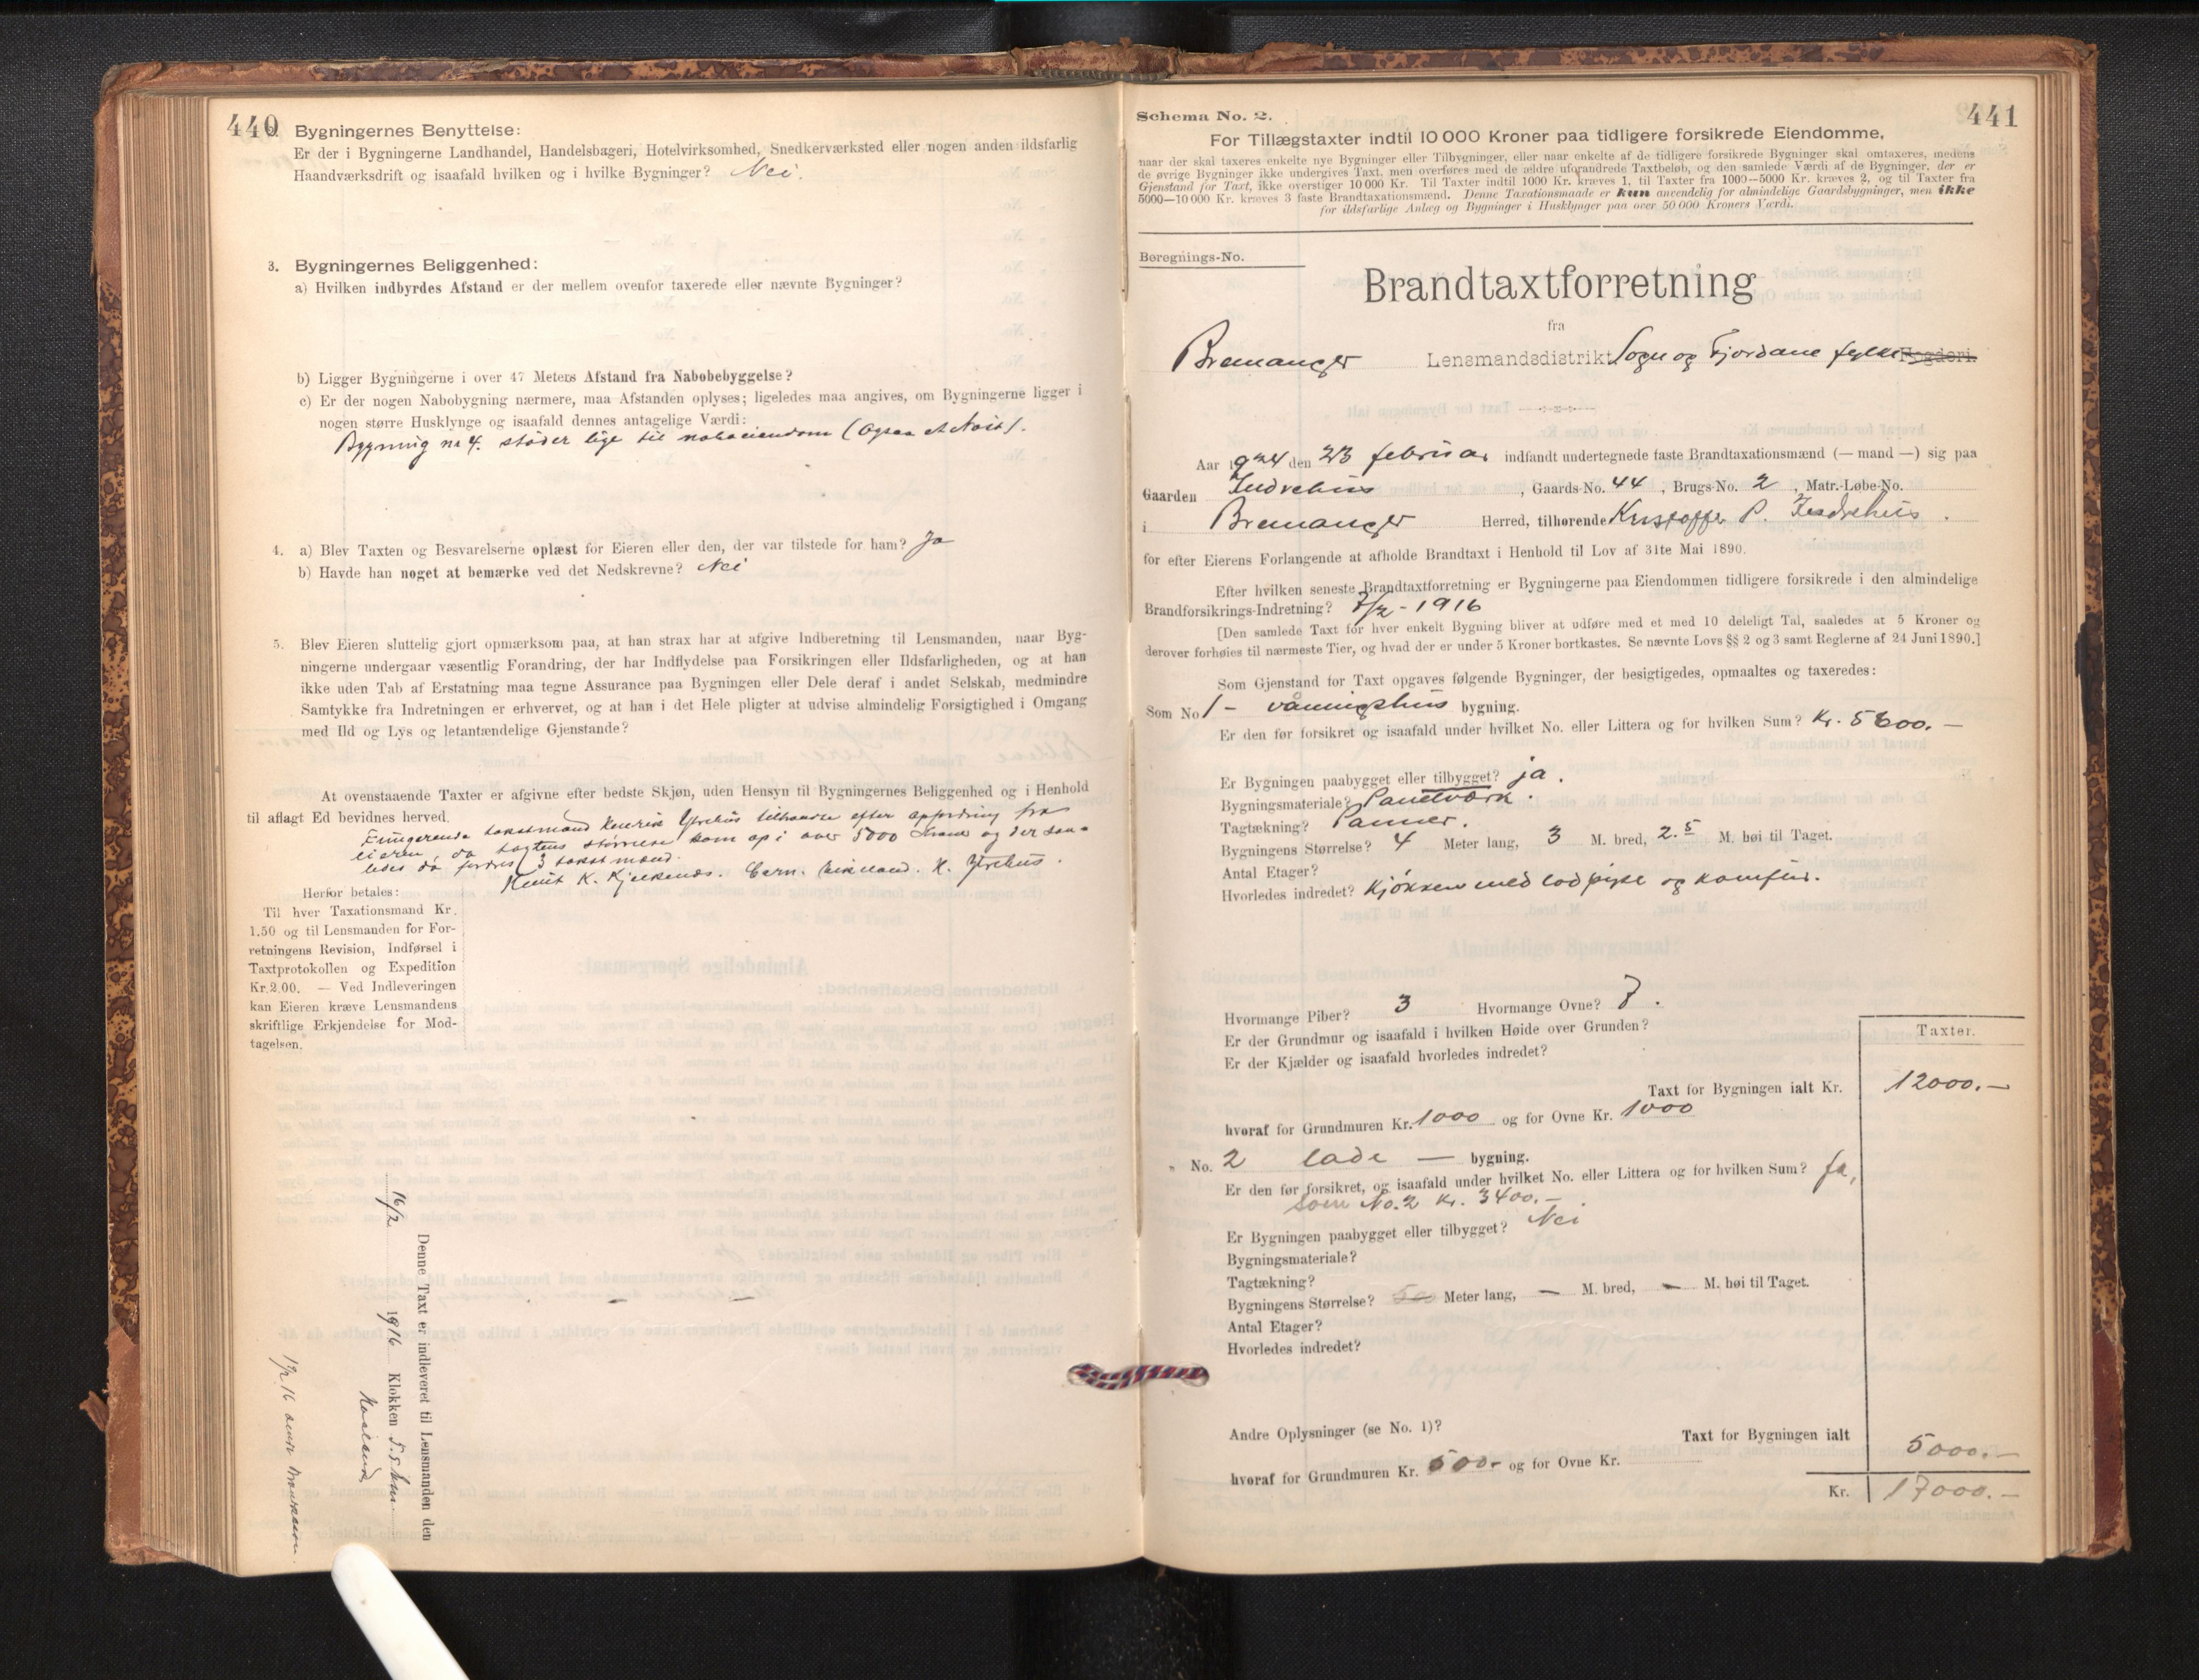 440
2. Bygningernes Benyttelse:
Er der i Bygningerne Landhandel, Handelsbageri, Hotelvirksomhed, Snedkerværksted eller nogen anden ildsfarlig
Haandværksdrift og isaafald hvilken og i hvilke Bygninger? Nei.
3. Bygningernes Beliggenhed:
a) Hvilken indbyrdes Afstand er der mellem ovenfor taxerede eller nævnte Bygninger?
b) Ligger Bygningerne i over 47 Meters Afstand fra Nabobebyggelse?
c) Er der nogen Nabobygning nærmere, maa Afstanden oplyses; ligeledes maa angives, om Bygningerne ligger i
nogen større Husklynge og isaafald dennes antagelige Værdi:
Bygning no 4. støder lige til naboeiendom (Ogsaa et Nøst).
4. a) Blev Taxten og Besvarelserne oplæst for Eieren eller den, der var tilstede for ham? Ja
b) Havde han noget at bemærke ved det Nedskrevne? Nei
5. Blev Eieren sluttelig gjort opmærksom paa, at han strax har at afgive Indberetning til Lensmanden, naar Byg-
ningerne undergaar væsentlig Forandring, der har Indflydelse paa Forsikringen eller Ildsfarligheden, og at han
ikke uden Tab af Erstatning maa tegne Assurance paa Bygningen eller Dele deraf i andet Selskab, medmindre
Samtykke fra Indretningen er erhvervet, og at han i det Hele pligter at udvise almindelig Forsigtighed i Omgang
med Ild og Lys og letantændelige Gjenstande?
At ovenstaaende Taxter er afgivne efter bedste Skjøn, uden Hensyn til Bygningernes Beliggenhed og i Henhold
til aflagt Ed bevidnes herved.
Fungerende takstmand Henrik Ytrehus tilkaldte efter opfordring fra
eieren, da takstens størrelse kom op i over 5000 Kroner og der saa-
ledes da fordres 3 takstmænd.
Knut K. Kjelkenes. H. Ytrehus.
Herfor betales:
Til hver Taxationsmand Kr.
1.50 og til Lensmanden for For-
retningens Revision, Indførsel i
Taxtprotokollen og Expedition
Kr. 2.00. — Ved Indleveringen
kan Eieren kræve Lensmandens
skriftlige Erkjendelse for Mod-
tagelsen.
Denne Taxt er indleveret til Lensmanden den
16/2 1916 Klokken 5.5
441
Schema No. 2.
For Tillægstaxter indtil 10 000 Kroner paa tidligere forsikrede Eiendomme,
naar der skal taxeres enkelte nye Bygninger eller Tilbygninger, eller naar enkelte af de tidligere forsikrede Bygninger skal omtaxeres, medens
de øvrige Bygninger ikke undergives Taxt, men overføres med de ældre uforandrede Taxtbeløb, og den samlede Værdi af de Bygninger, der er
Gjenstand for Taxt, ikke overstiger 10 000 Kr. Til Taxter indtil 1000 Kr. kræves 1, til Taxter fra 1000—5000 Kr. kræves 2, og til Taxter fra
5000—10 000 Kr. kræves 3 faste Brandtaxationsmænd. Denne Taxationsmaade er kun anvendelig for almindelige Gaardsbygninger, men ikke
for ildsfarlige Anlæg og Bygninger i Husklynger paa over 50 000 Kroners Værdi.
Beregnings-No.
Brandtaxtforretning
fra
Bremanger Lensmandsdistrikt Sogn og Fjordane fylke Fogderi.
Aar 1924 den 23 februar indfandt undertegnede faste Brandtaxationsmænd (— mand —) sig paa
Gaarden Indrehus, Gaards-No. 44, Brugs-No. 2, Matr.-Løbe-No.
i Bremanger Herred, tilhørende Kristoffer P. Indrehus.
for efter Eierens Forlangende at afholde Brandtaxt i Henhold til Lov af 31te Mai 1890.
Efter hvilken seneste Brandtaxtforretning er Bygningerne paa Eiendommen tidligere forsikrede i den almindelige
Brandforsikrings-Indretning? 7/2 - 1916
[Den samlede Taxt for hver enkelt Bygning bliver at udføre med et med 10 deleligt Tal, saaledes at 5 Kroner og
derover forhøies til nærmeste Tier, og hvad der er under 5 Kroner bortkastes. Se nævnte Lovs §§ 2 og 3 samt Reglerne af 24 Juni 1890.]
Som Gjenstand for Taxt opgaves følgende Bygninger, der besigtigedes, opmaaltes og taxeredes:
Som No 1 - våningshus bygning.
Er den før forsikret og isaafald under hvilket No. eller Littera og for hvilken Sum? Kr. 5800.—
Er Bygningen paabygget eller tilbygget? ja.
Bygningsmateriale? Panelværk.
Tagtækning? Panner.
Bygningens Størrelse? 4 Meter lang, 3 M. bred, 2.5 M. høi til Taget.
Antal Etager?
Hvorledes indredet? Kjøkken med lodpipe og komfur.
Hvormange Piber? 3 Hvormange Ovne? 7.
Er der Grundmur og isaafald i hvilken Høide over Grunden?
Er der Kjælder og isaafald hvorledes indredet?
Taxter.
Taxt for Bygningen ialt Kr. 12000.—
hvoraf for Grundmuren Kr. 1000 og for Ovne Kr. 1000
" No. 2 lade — bygning.
Er den før forsikret, og isaafald under hvilket No. eller Littera og for hvilken Sum? Ja,
som No. 2 Kr. 3400.—
Er Bygningen paabygget eller tilbygget? Nei
Bygningsmateriale?
Tagtækning?
Bygningens Størrelse? — Meter lang, — M. bred, — M. høi til Taget.
Antal Etager?
Hvorledes indredet?
Andre Oplysninger (se No. 1)?
Taxt for Bygningen ialt 5000.—
hvoraf for Grundmuren Kr. 500- og for Ovne Kr.
Kr. 17000.—